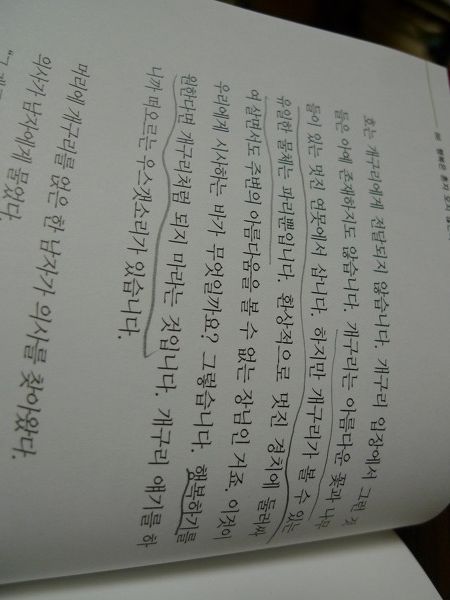 호는 개구리에게 전달되지 않습니다. 개구리 입장에서 그런 것
들은 아예 존재하지도 않습니다. 개구리는 아름다운 꽃과 나무
들이 있는 멋진 연못에서 삽니다. 하지만 개구리가 볼 수 있는
유일한 물체는 파리뿐입니다. 환상적으로 멋진 경치에 둘러싸
여 살면서도 주변의 아름다움을 볼 수 없는 장님인 거죠. 이것이
우리에게 시사하는 바가 무엇일까요? 그렇습니다. 행복하기를
원한다면 개구리처럼 되지 마라는 것입니다. 개구리 얘기를 하
니까 떠오르는 우스갯소리가 있습니다.
머리에 개구리를 얹은 한 남자가 의사를 찾아왔다.
의사가 남자에게 물었다.